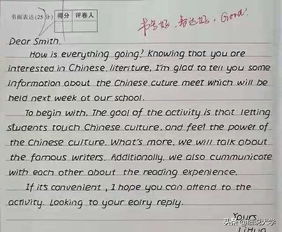 书面表达(25分) 得分 评卷人
书写好, 表达好, Good.
Dear Smith,
How is everything going? Knowing that you are
interested in Chinese literture, I'm glad to tell you some
information about the Chinese cuture meet which will be
held next week at our school.
To begin with, The goal of the activity is that letting
students touch Chinese culture, and feel the power of
the Chinese culture. What's more, we will talk about
the famous writers. Additionally, we also cummunicate
with each other about the reading expenience.
If it's convenient, I hope you can attend to the
activity. Looking to your eairy reply.
Yours
LiHua